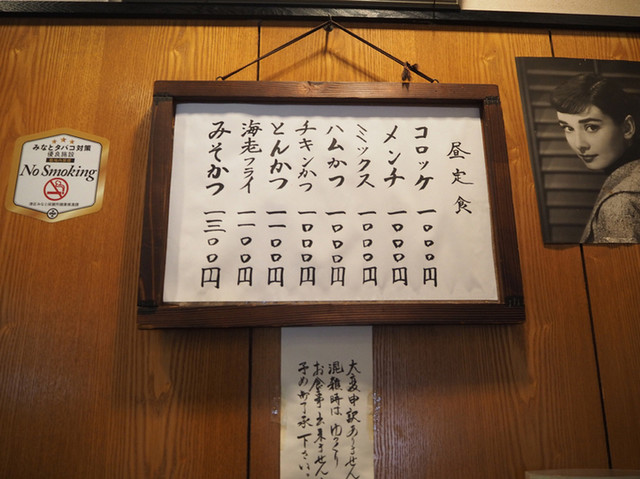 昼定食
コロッケ 一〇〇〇円
メンチ 一〇〇〇円
ミックス 一〇〇〇円
ハムかつ 一〇〇〇円
チキンかつ 一〇〇〇円
とんかつ 一一〇〇円
海老フライ 一一〇〇円
みそかつ 一三〇〇円
大変申訳ありません
混雑時は ゆっくり
お食事出来ません
予めご了承下さい。
みなとタバコ対策
優良施設
No Smoking